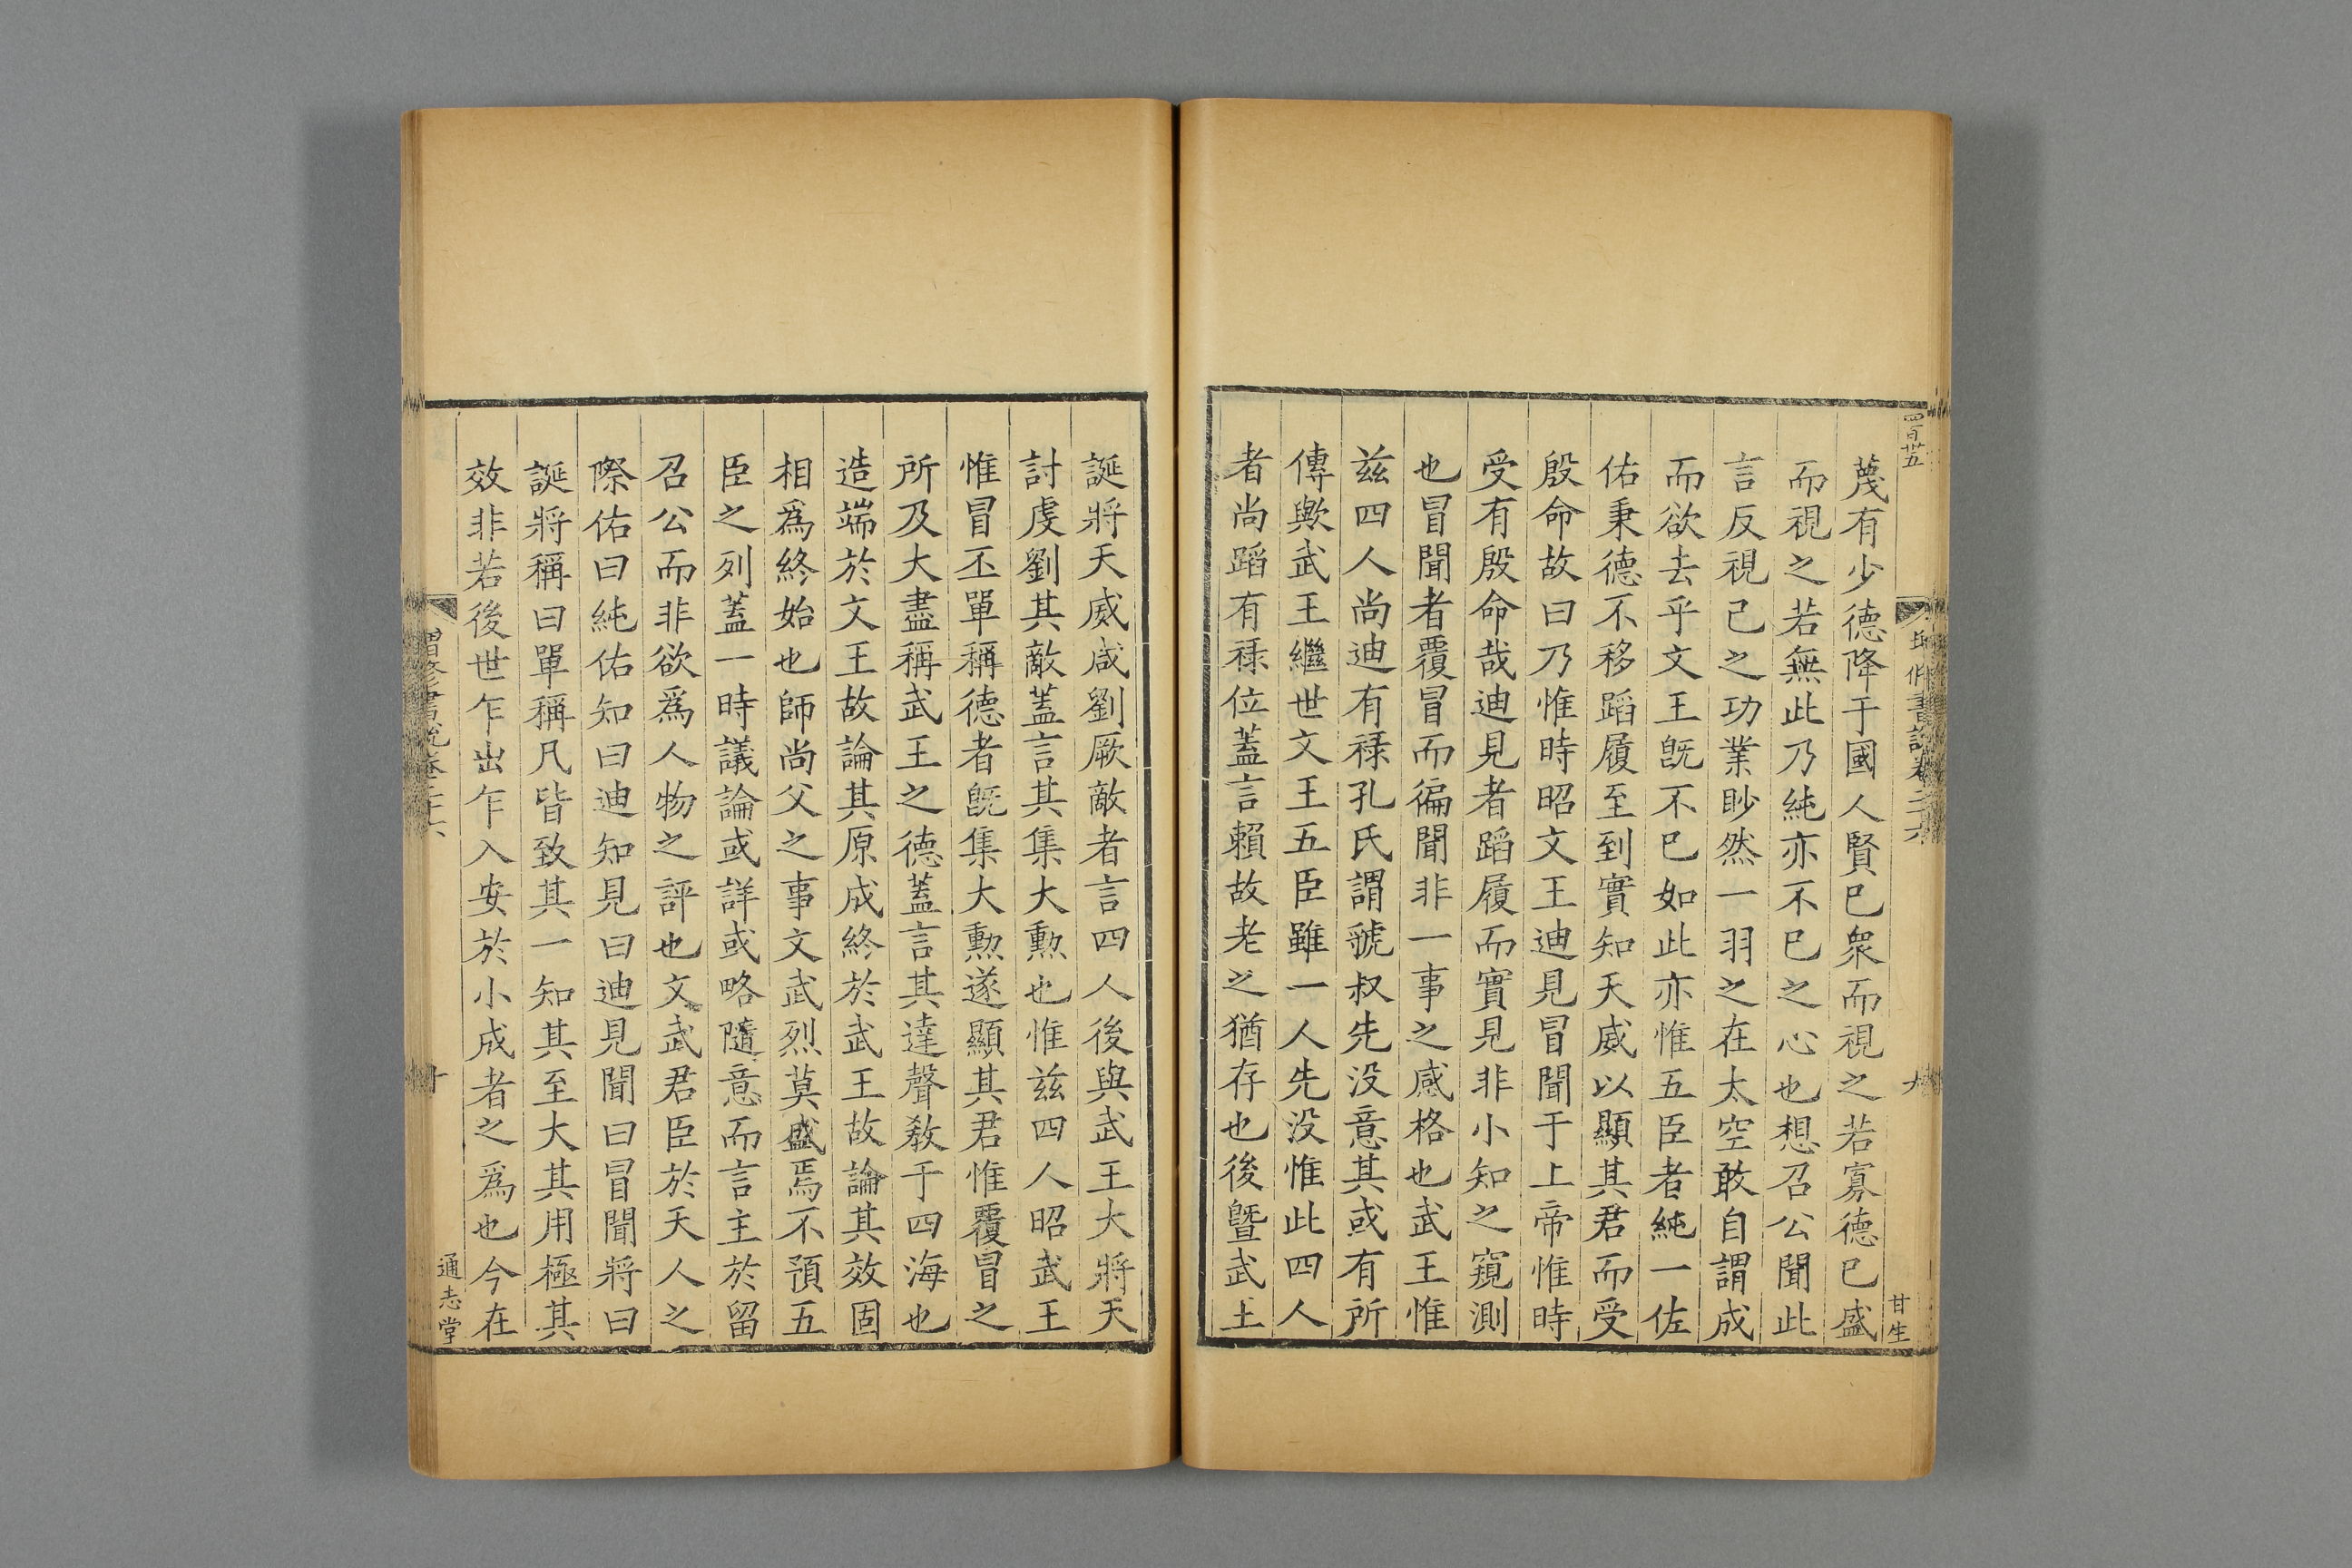 四百廿五
蔑有少德降于國人賢已衆而視之若寡德已盛
而視之若無此乃純亦不已之心也想召公聞此
言反視己之功業眇然一羽之在太空敢自謂成
而欲去乎文王旣不已如此亦惟五臣者純一佐
佑秉德不移蹈履至到實知天威以顯其君而受
殷命故曰乃惟時昭文王迪見冒聞于上帝惟時
受有殷命哉迪見者蹈履而實見非小知之窺測
也冒聞者覆冒而徧聞非一事之感格也武王惟
兹四人尚迪有祿孔氏謂虢叔先没意其或有所
傳歟武王繼世文王五臣雖一人先没惟此四人
者尚蹈有祿位蓋言賴故老之猶存也後曁武王
甘生
誕將天威咸劉厥敵者言四人後與武王大將天
討虔劉其敵蓋言其集大勲也惟兹四人昭武王
惟冒丕單稱德者旣集大勲遂顯其君惟覆冒之
所及大盡稱武王之德蓋言其達聲教于四海也
造端於文王故論其原成終於武王故論其效固
相爲終始也師尚父之事文武烈莫盛焉不預五
臣之列蓋一時議論或詳或略隨意而言主於留
召公而非欲爲人物之評也文武君臣於天人之
際佑曰純佑知曰迪知見曰迪見聞曰冒聞將曰
誕將稱曰單稱凡皆致其一知其至大其用極其
效非若後世乍出乍入安於小成者之爲也今在
增修書説卷二十六
十
通志堂